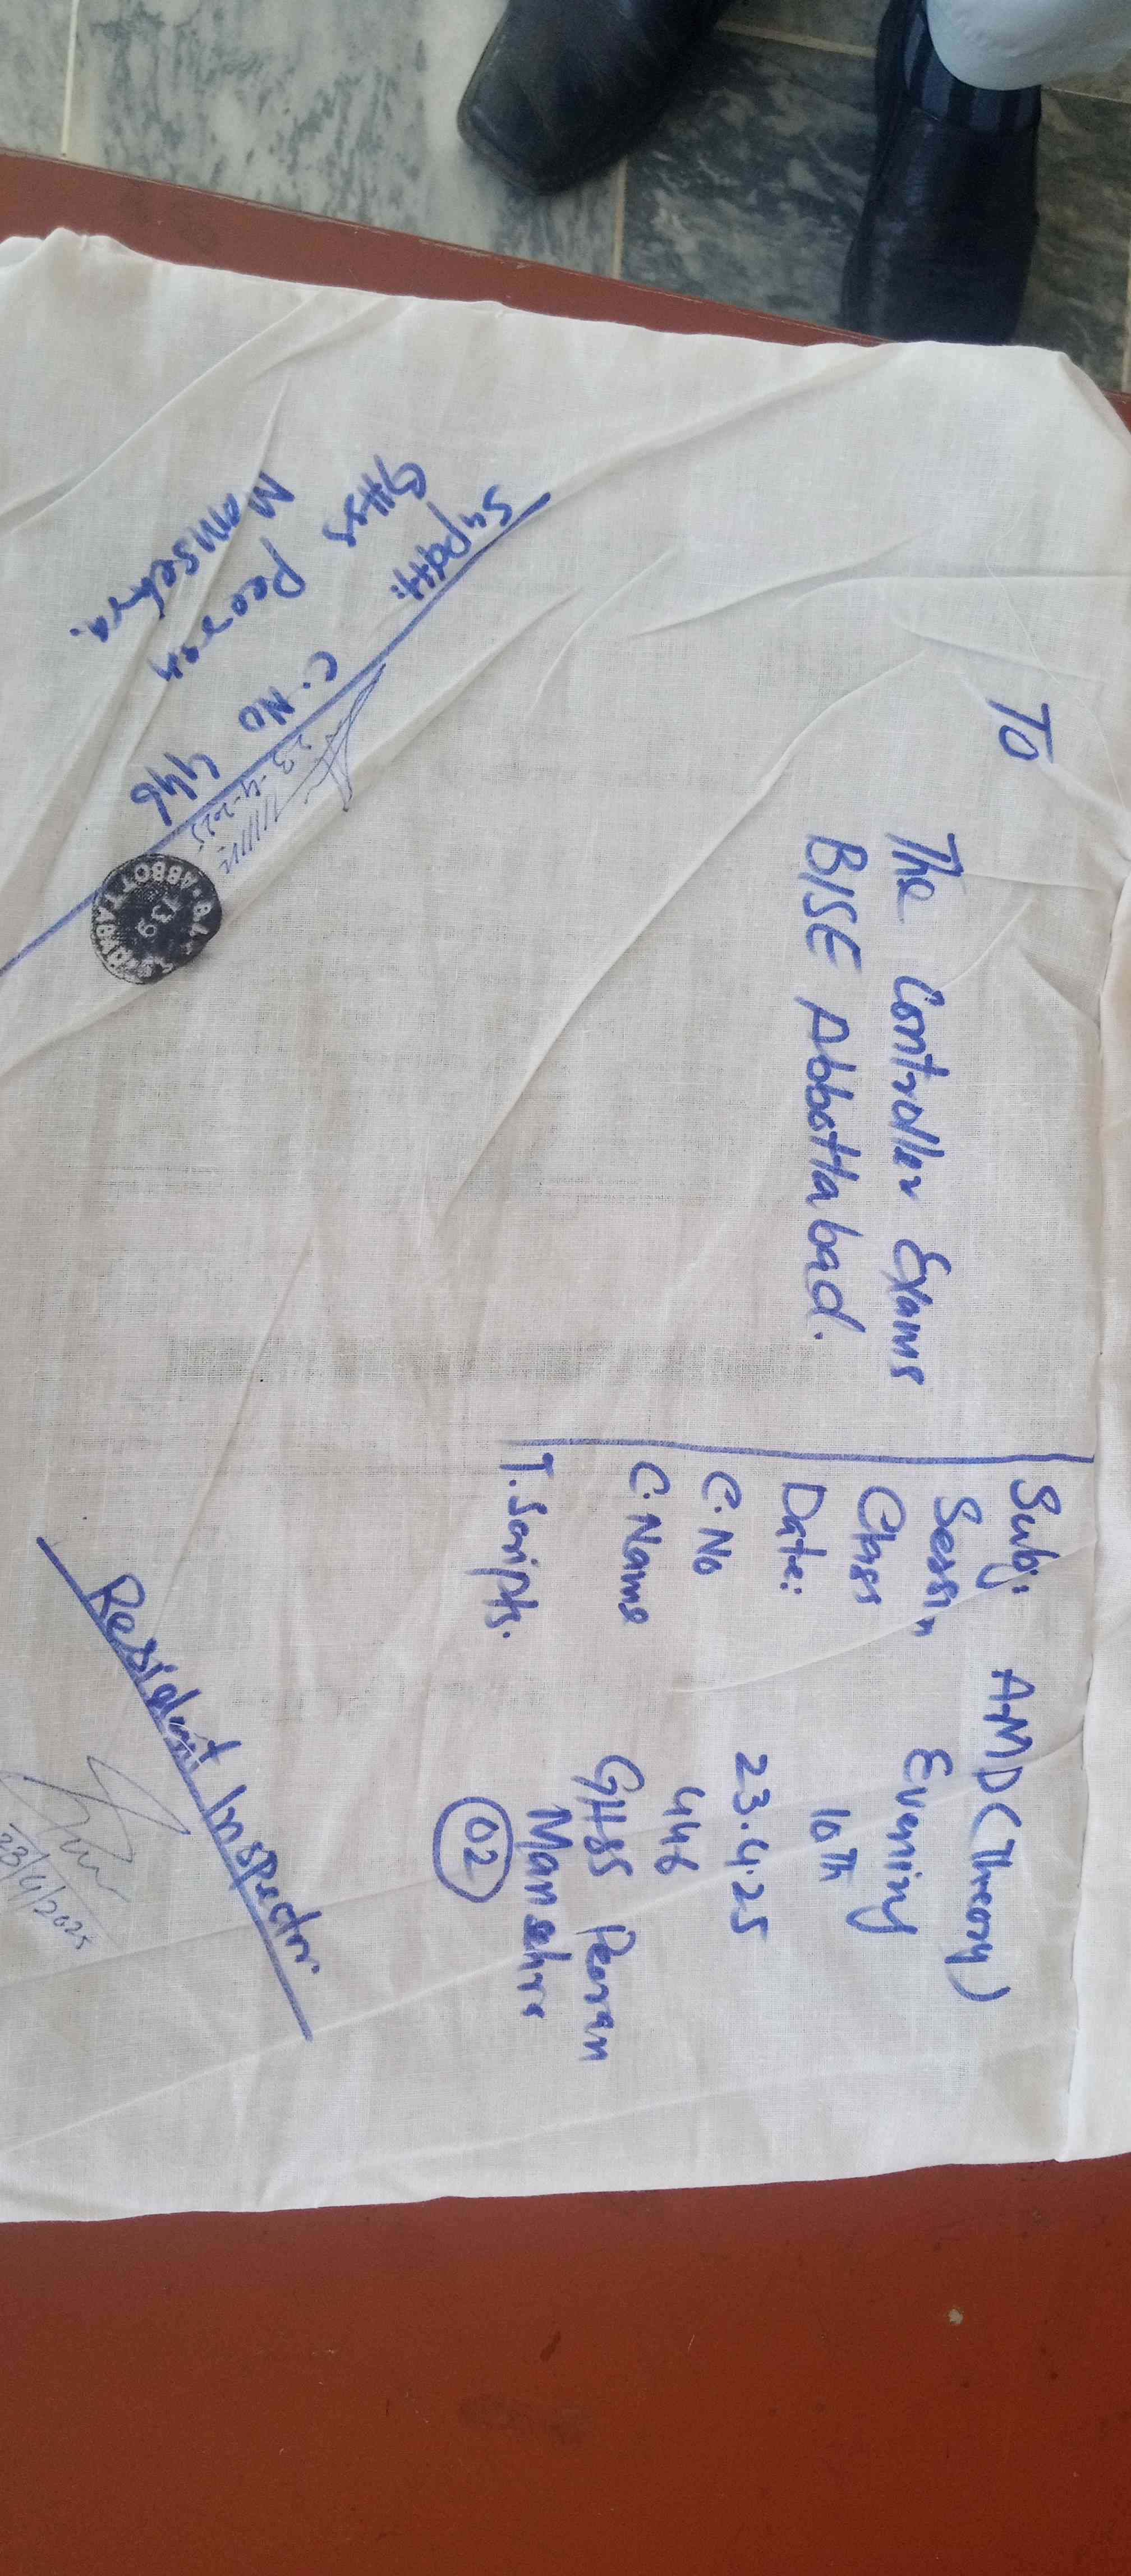 To
The Controller Exams
BISE Abbottabad.
Subj: AMD (Theory)
Session Evening
Class 10Th
Date: 23.4.25
C.No 446
C.Name GHSS Peoran
Mansehra
T.Scripts. 02
Supdtt:
GHSS Peoran
Mansehra.
C.No 446
23-4-2025
ABBOTTABAD
Resident Inspector.
23/4/2025